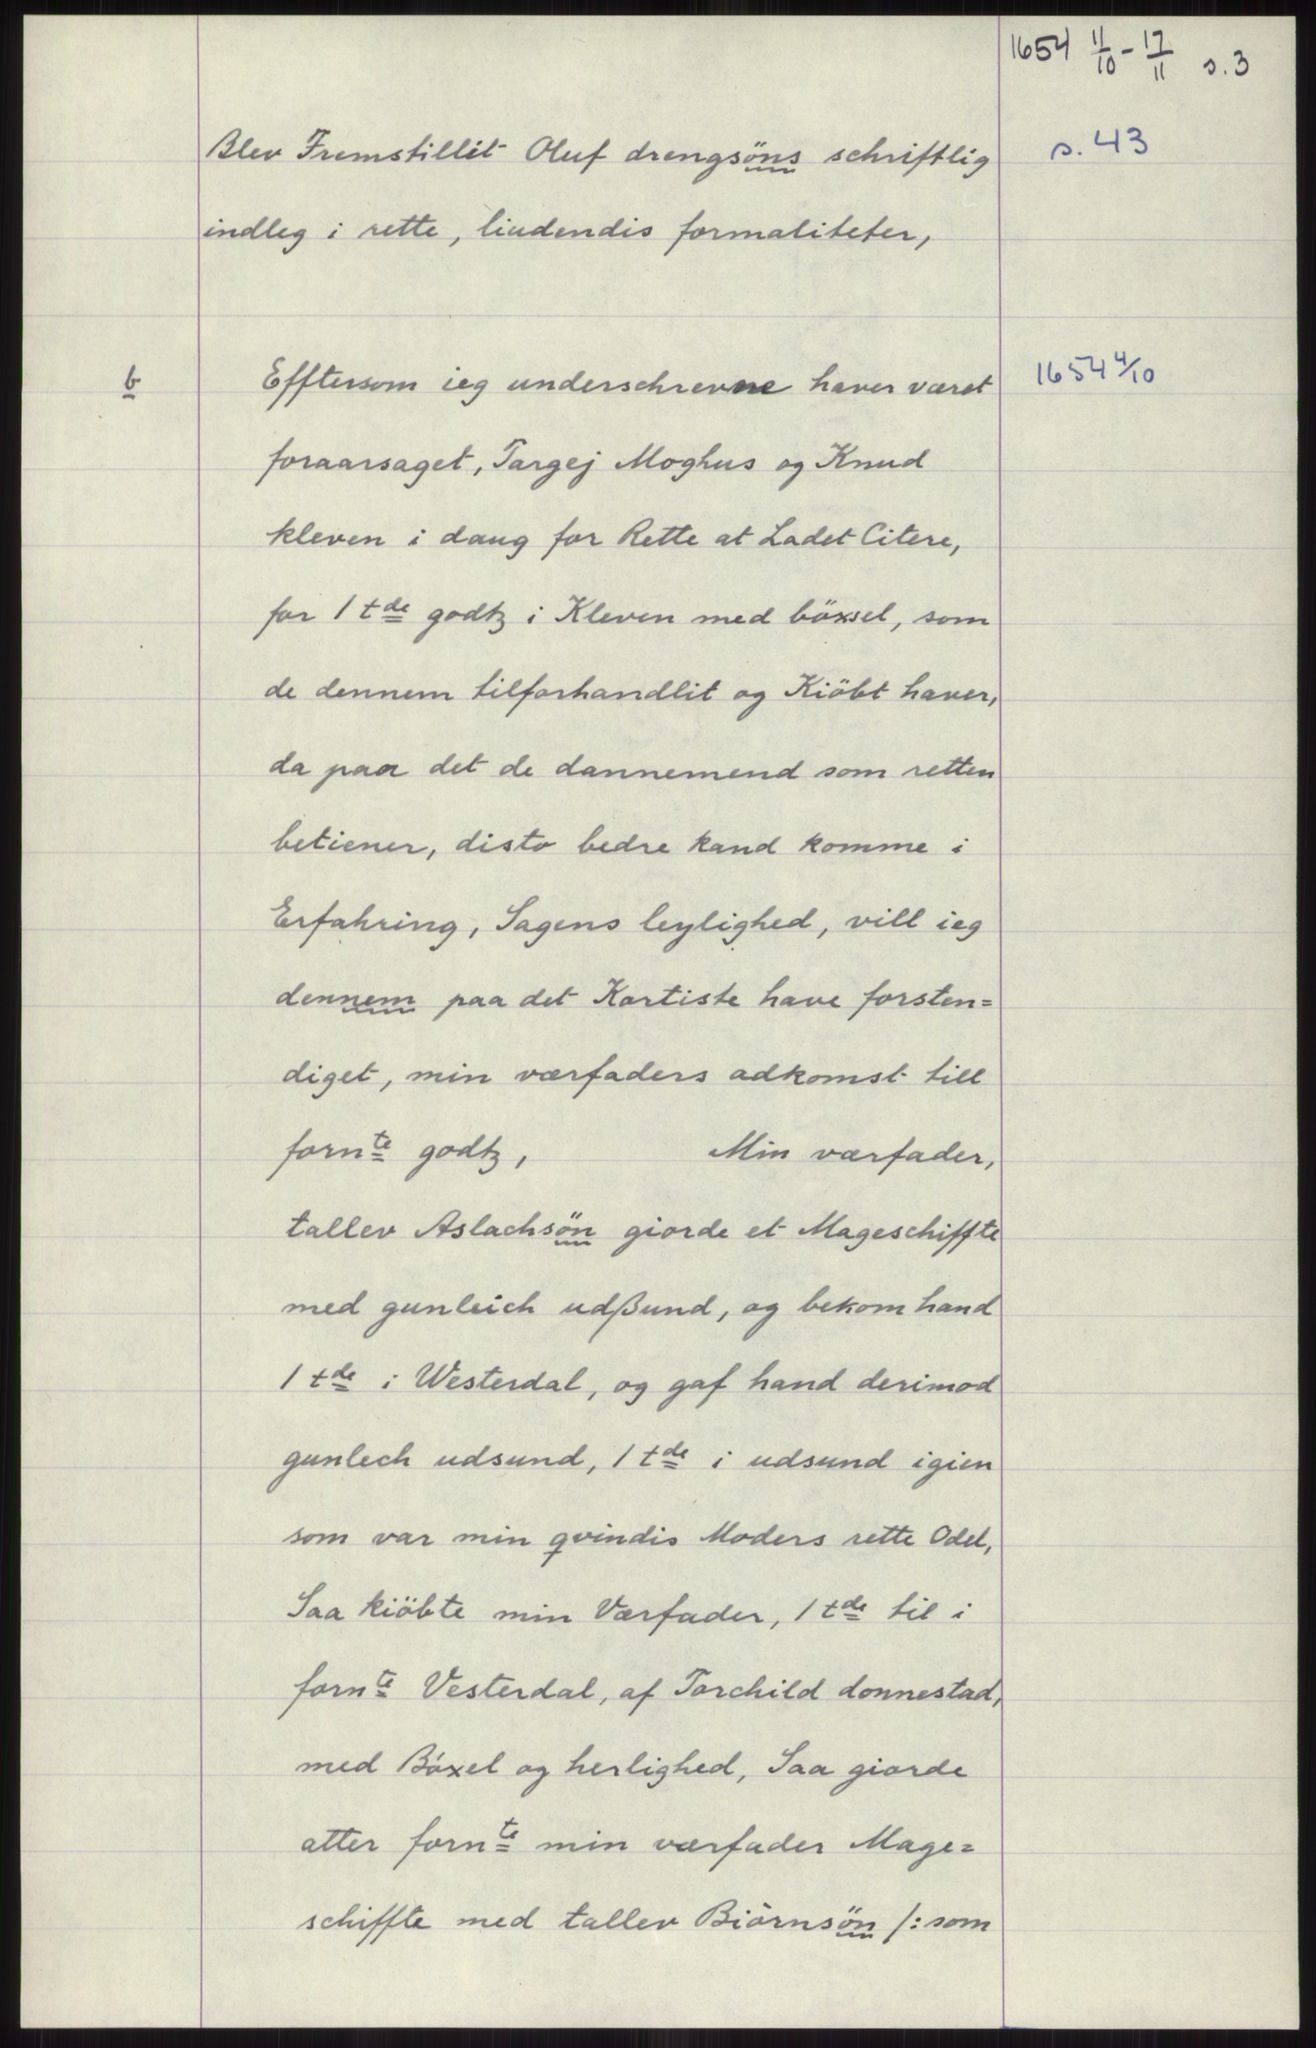 1654 11/10 - 17/11 s. 3
Blev Fremstillit Oluf drengsöns schriftlig s. 43
indleg i rette, liudendis formaliteter,
b Efftersom ieg underschrevne haver været 1654 4/10
foraarsaget, Targej Moghus og Knud
kleven i daug for Rette at Ladet Citere,
for 1 tde godtz i Kleven med böxsel, som
de dennem tilforhandlit og Kiöbt haver,
da paa det de dannemend som retten
betiener, disto bedre kand komme i
Erfahring, Sagens leylighed, vill ieg
dennem paa det Kortiste have forsten=
diget, min værfaders adkomst till
fornte godtz, Min værfader,
tallev Aslachsön giorde et Mageschiffte
med gunleich udßund, og bekom hand
1 tde i Westerdal, og gaf hand derimod
gunlech udsund, 1 tde i udsund igien
som var min qvindis Moders rette Odel,
Saa kiöbte min Værfader, 1 tde til i
fornte Vesterdal, af Torchild donnestad,
med Böxel og herlighed, Saa giorde
atter fornte min værfader Mage=
schiffte med tallev Biörnsön /: som